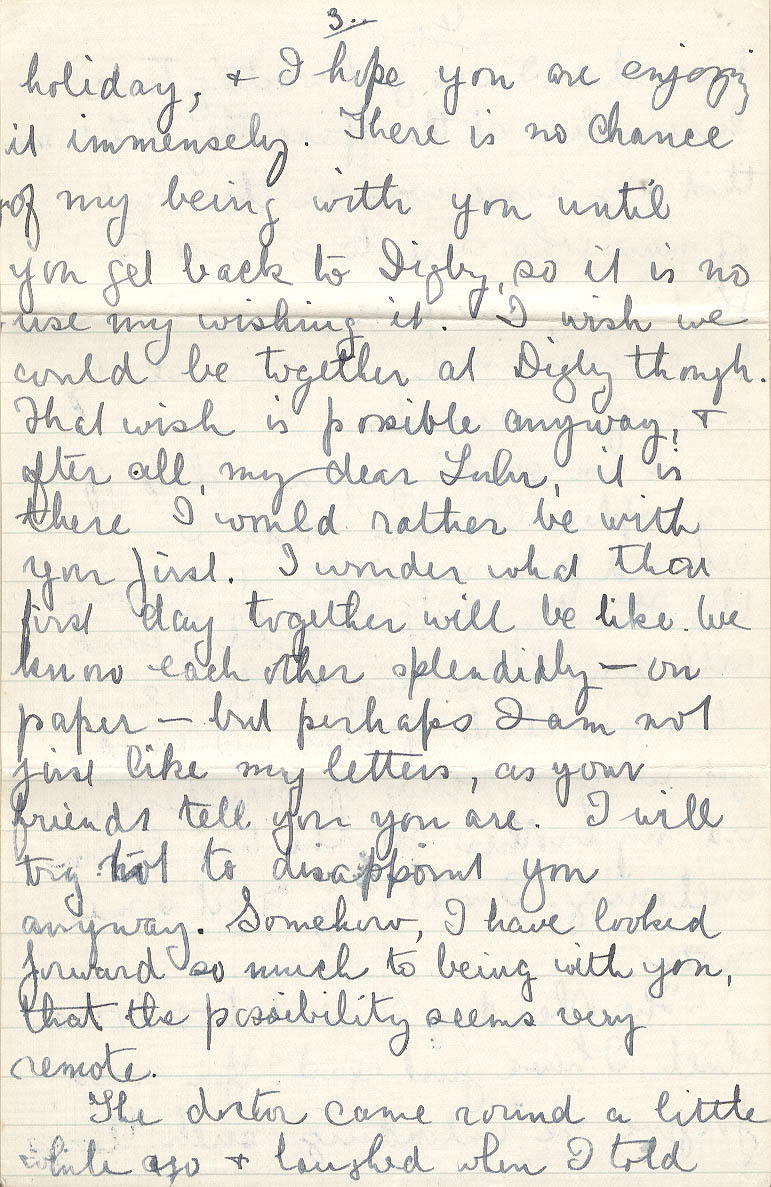 3..
holiday, & I hope you are enjoying
it immensely. There is no chance
of my being with you until
you get back to Digby, so it is no
use my wishing it. I wish we
could be together at Digby though.
That wish is possible anyway, &
after all, my dear Lulu, it is
there I would rather be with
you first. I wonder what that
first day together will be like. We
know each other splendidly — on
paper — but perhaps I am not
just like my letters, as your
friends tell you you are. I will
try not to disappoint you
anyway. Somehow, I have looked
forward so much to being with you,
that the possibility seems very
remote.
The doctor came round a little
while ago & laughed when I told